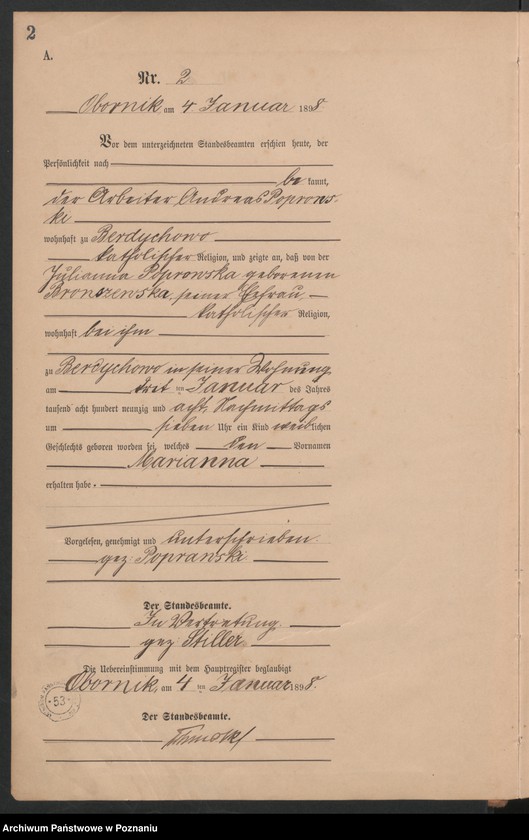 2
A.
Nr. 2
Obornik am 4. Januar 1898
Vor dem unterzeichneten Standesbeamten erschien heute, der
Persönlichkeit nach
be kannt,
der Arbeiter Andreas Poprows-
ki
wohnhaft zu Berdychowo
katholischer Religion, und zeigte an, daß von der
Julianna Poprowska geborenen
Bronszewska, seiner Ehefrau,
katholischer Religion,
wohnhaft bei ihm
zu Berdychowo in seiner Wohnung
am drei ten Januar des Jahres
tausend acht hundert neunzig und acht Nachmittags
um sieben Uhr ein Kind weiblichen
Geschlechts geboren worden sei, welches den Vornamen
Marianna
erhalten habe.
Vorgelesen, genehmigt und unterschrieben
gez. Popranski
Der Standesbeamte.
In Vertretung.
gez. Stiller.
Die Uebereinstimmung mit dem Hauptregister beglaubigt
Obornik, am 4 ten Januar 1898.
53
Der Standesbeamte.
Archiwum Państwowe w Poznaniu